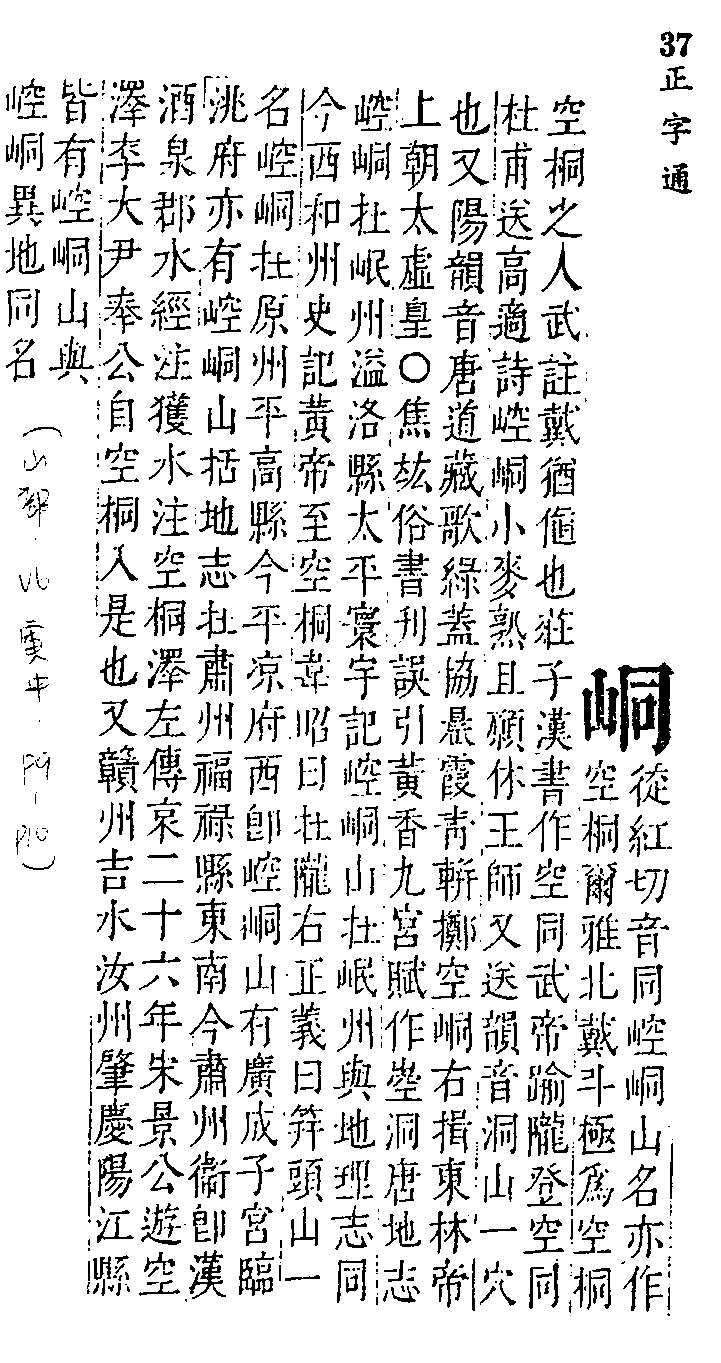 37正字通
峒
從紅切音同崆峒山名亦作
空桐爾雅北戴斗極爲空桐
空桐之人武註戴猶値也莊子漢書作空同武帝踰隴登空同
杜甫送高適詩崆峒小麥熟且願休王師又送韻音洞山一穴
也又陽韻音唐道藏歌綠葢協晨霞靑輧擲空峒右揖東林帝
上朝太虛皇○焦竑俗書刋誤引黃香九宮賦作㟅洞唐地志
崆峒在岷州溢洛縣太平寰宇記崆峒山在岷州與地理志同
今西和州史記黃帝至空桐韋昭曰在隴右正義曰筓頭山一
名崆峒在原州平高縣今平凉府西卽崆峒山有廣成子宮臨
洮府亦有崆峒山括地志在肅州福祿縣東南今肅州衞卽漢
酒泉郡水經注獲水注空桐澤左傳哀二十六年宋景公遊空
澤李大尹奉公自空桐入是也又贛州吉水汝州肇慶陽江縣
皆有崆峒山與
崆峒異地同名